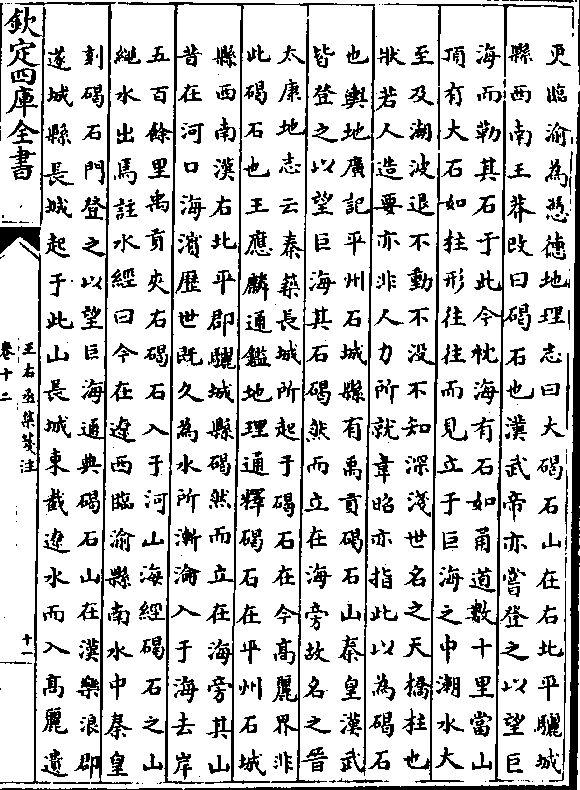 更臨渝為憑德地理志曰大碣石山在右北平驪城
縣西南王莽改曰碣石也漢武帝亦嘗登之以望巨
海而勒其石于此今枕海有石如甬道數十里當山
頂有大石如柱形往往而見立于巨海之中潮水大
至及潮波退不動不没不知深淺世名之天橋柱也
狀若人造要亦非人力所就韋昭亦指此以為碣石
也輿地廣記平州石城縣有禹貢碣石山秦皇漢武
皆登之以望巨海其石碣然而立在海旁故名之晉
太康地志云秦築長城所起于碣石在今髙麗界非
此碣石也王應麟通鑑地理通釋碣石在平州石城
縣西南漢右北平郡驪城縣碣然而立在海旁其山
昔在河口海濵歴世既久為水所漸淪入于海去岸
五百餘里禹貢夾右碣石入于河山海經碣石之山
繩水出焉註水經曰今在遼西臨渝縣南水中秦皇
刻碣石門登之以望巨海通典碣石山在漢樂浪郡
遂城縣長城起于此山長城東截遼水而入髙麗遺
欽定四庫全書
王右丞集箋注
卷十二
十一